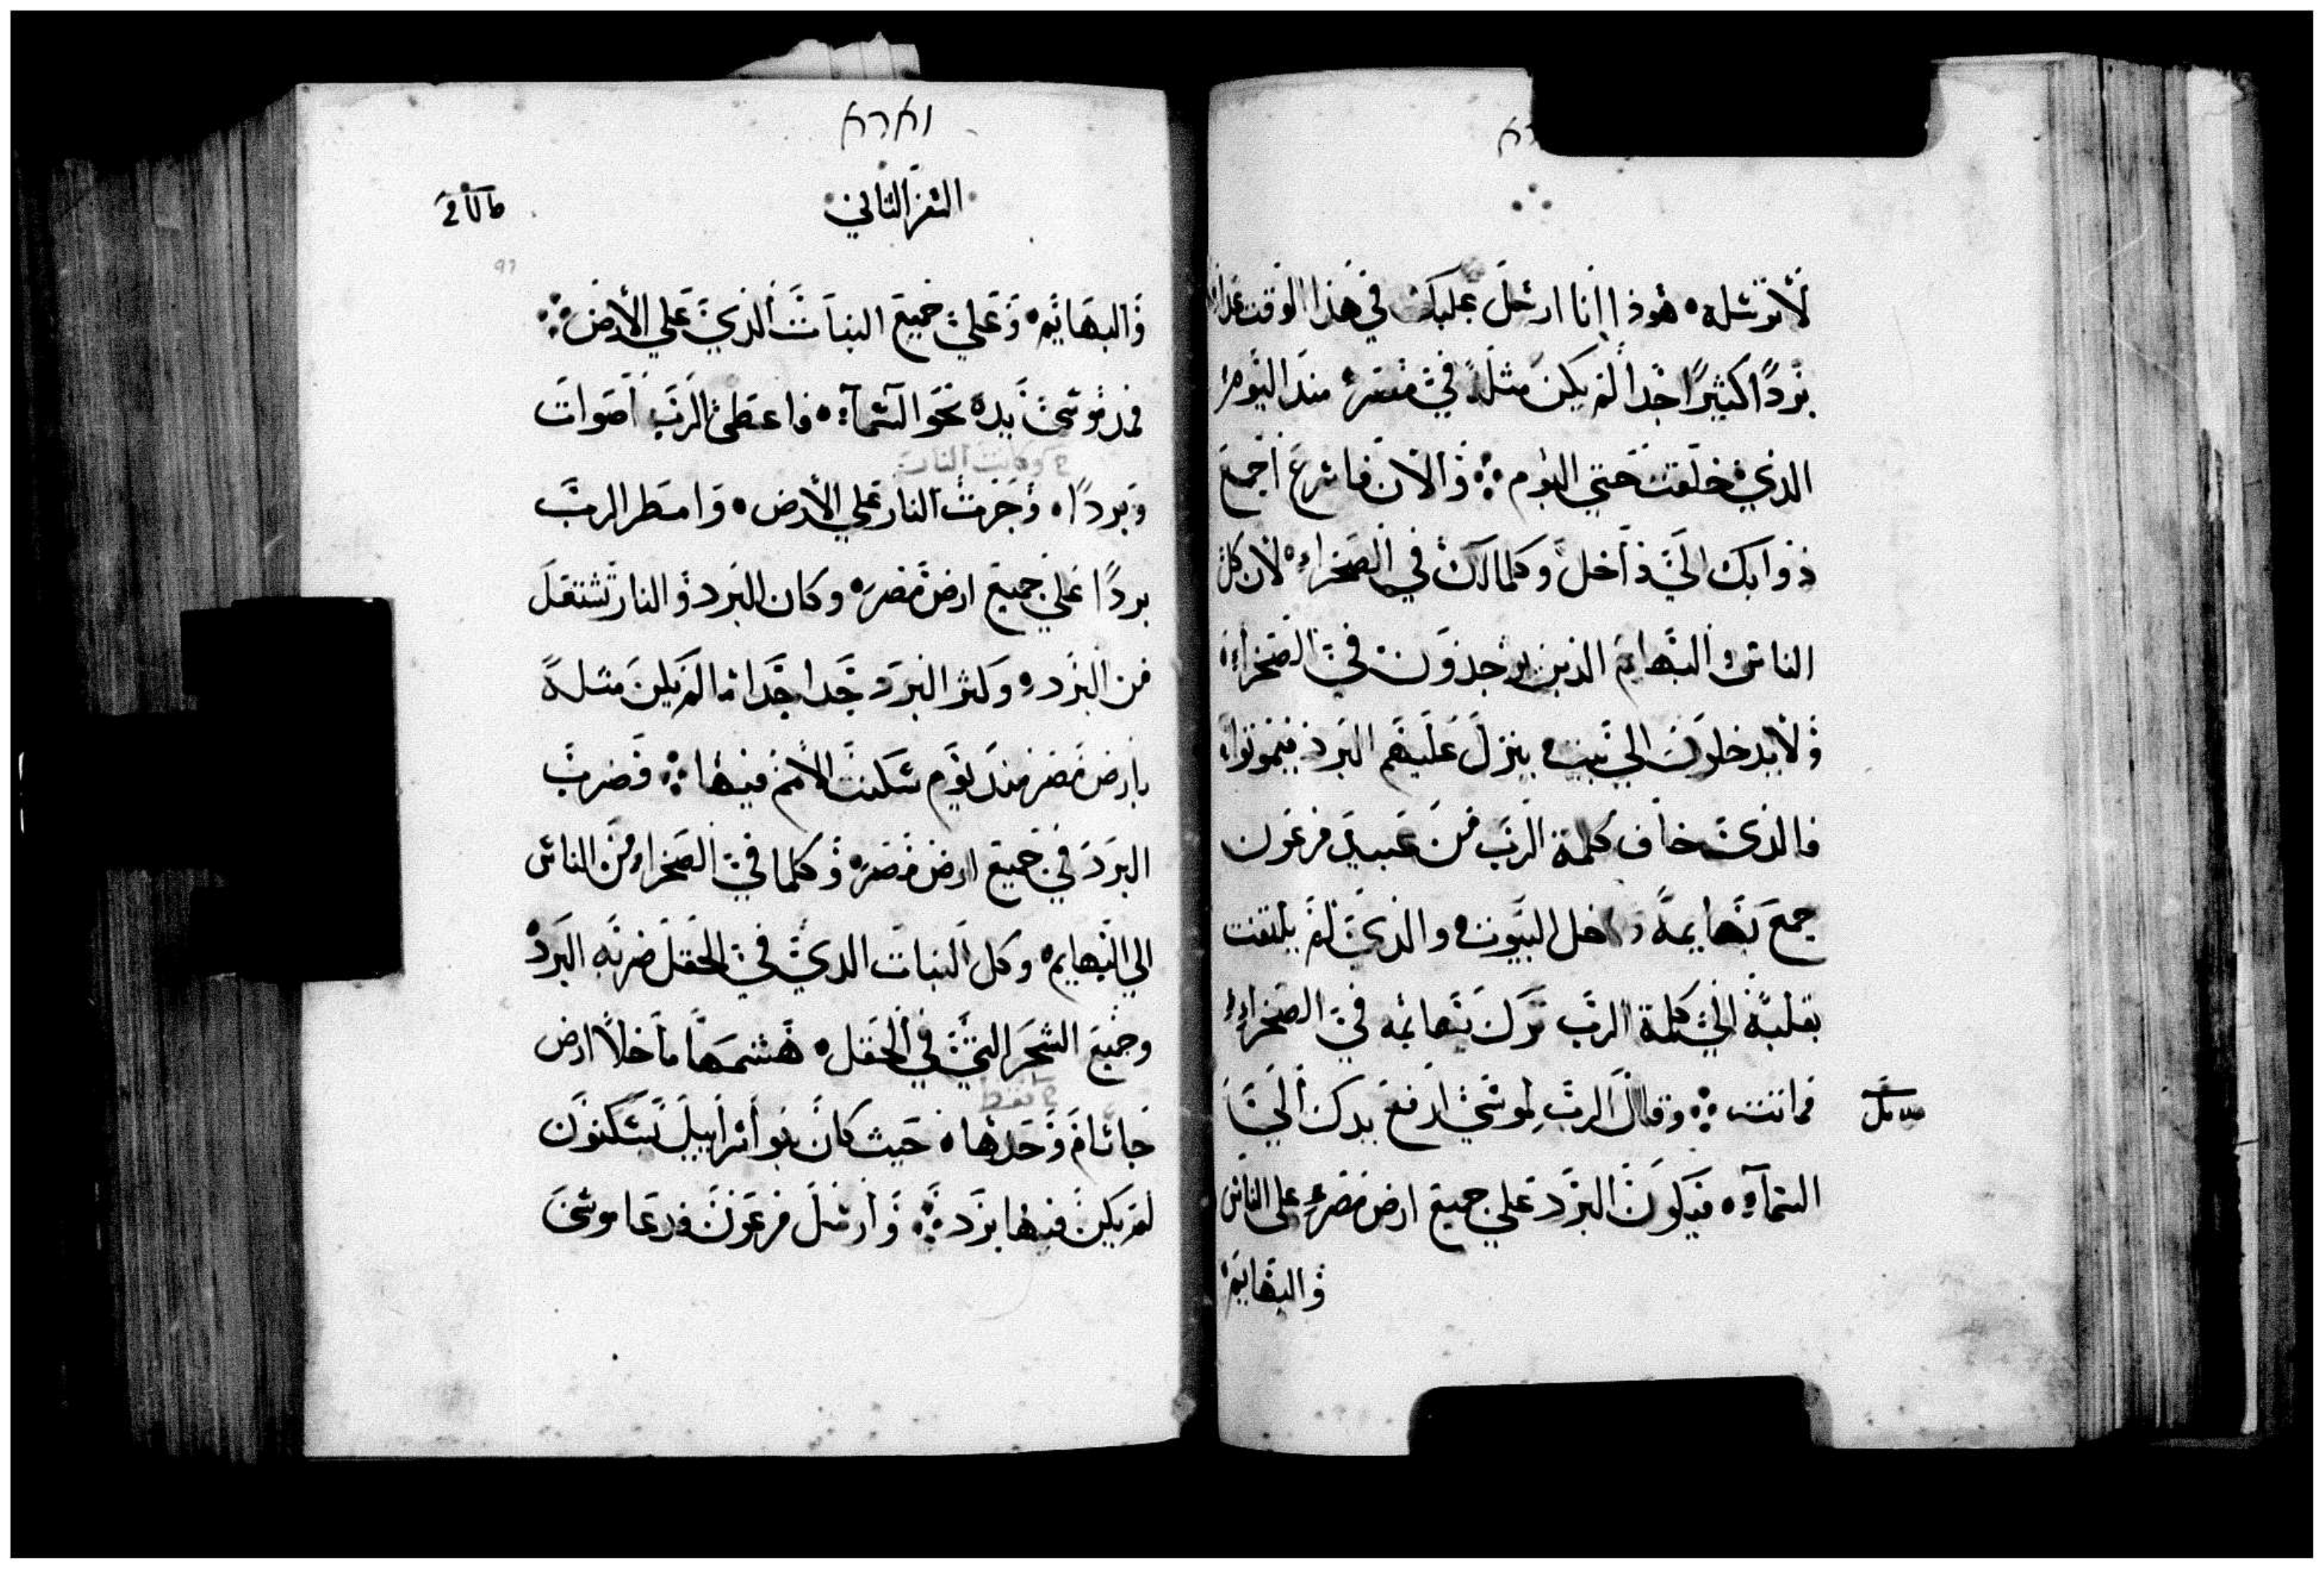 لا ترسله ۰ هوذا انا ارسل عليك في هذا الوقت غدا
بردًا كثيرًا جدا لم يكن مثله في مصر منذ اليوم
الذي خلقت حتي اليوم ܀ والان فاسرع اجمع
ذوابك الي داخل وكلما لك في الصحراء لان كل
الناس والبهايم الذين يوجدون في الصحراء
ولا يدخلون الي بيت ينزل عليهم البرد فيموتوا
فالذي خاف كلمة الرب من عبيد فرعون
جمع بهايمه داخل البيوت والذي لم يلتفت
بقلبه الي كلمة الرب ترك بهائمه في الصحراء
فماتت ܀ وقال الرب لموسي ارفع يدك الي
السمآء فيكون البرد علي جميع ارض مصر علي الناس
والبهايم
וארא
السفر الثاني
والبهايم ۰ وعلي جميع النبات الذي علي الارض ܀
فمد موسى يده نحو السمآء ۰ فاعطى الرب اصوات
وكانت النار
وبردًا ۰ وجرت النار علي الارض ۰ وامطر الرب
بردًا علي جميع ارض مصر ۰ وكان البرد والنار تشتعل
من البرد ۰ وكثر البرد جدا جدا ما لم يكن مثله
بارض مصر منذ يوم سكنت الامم فيها ܀ وضرب
البرد في جميع ارض مصر ۰ وكلما في الصحراء من الناس
الي البهايم ۰ وكل النبات الدي في الحقل ضربه البرد
وجميع الشجر التي في الحقل ۰ هشمها ما خلا ارض
فقط
جاسام وحدها ۰ حيث كان بنو اسراييل يسكنون
لم يكن فيها برد ܀ وارسل فرعون فدعا موسى